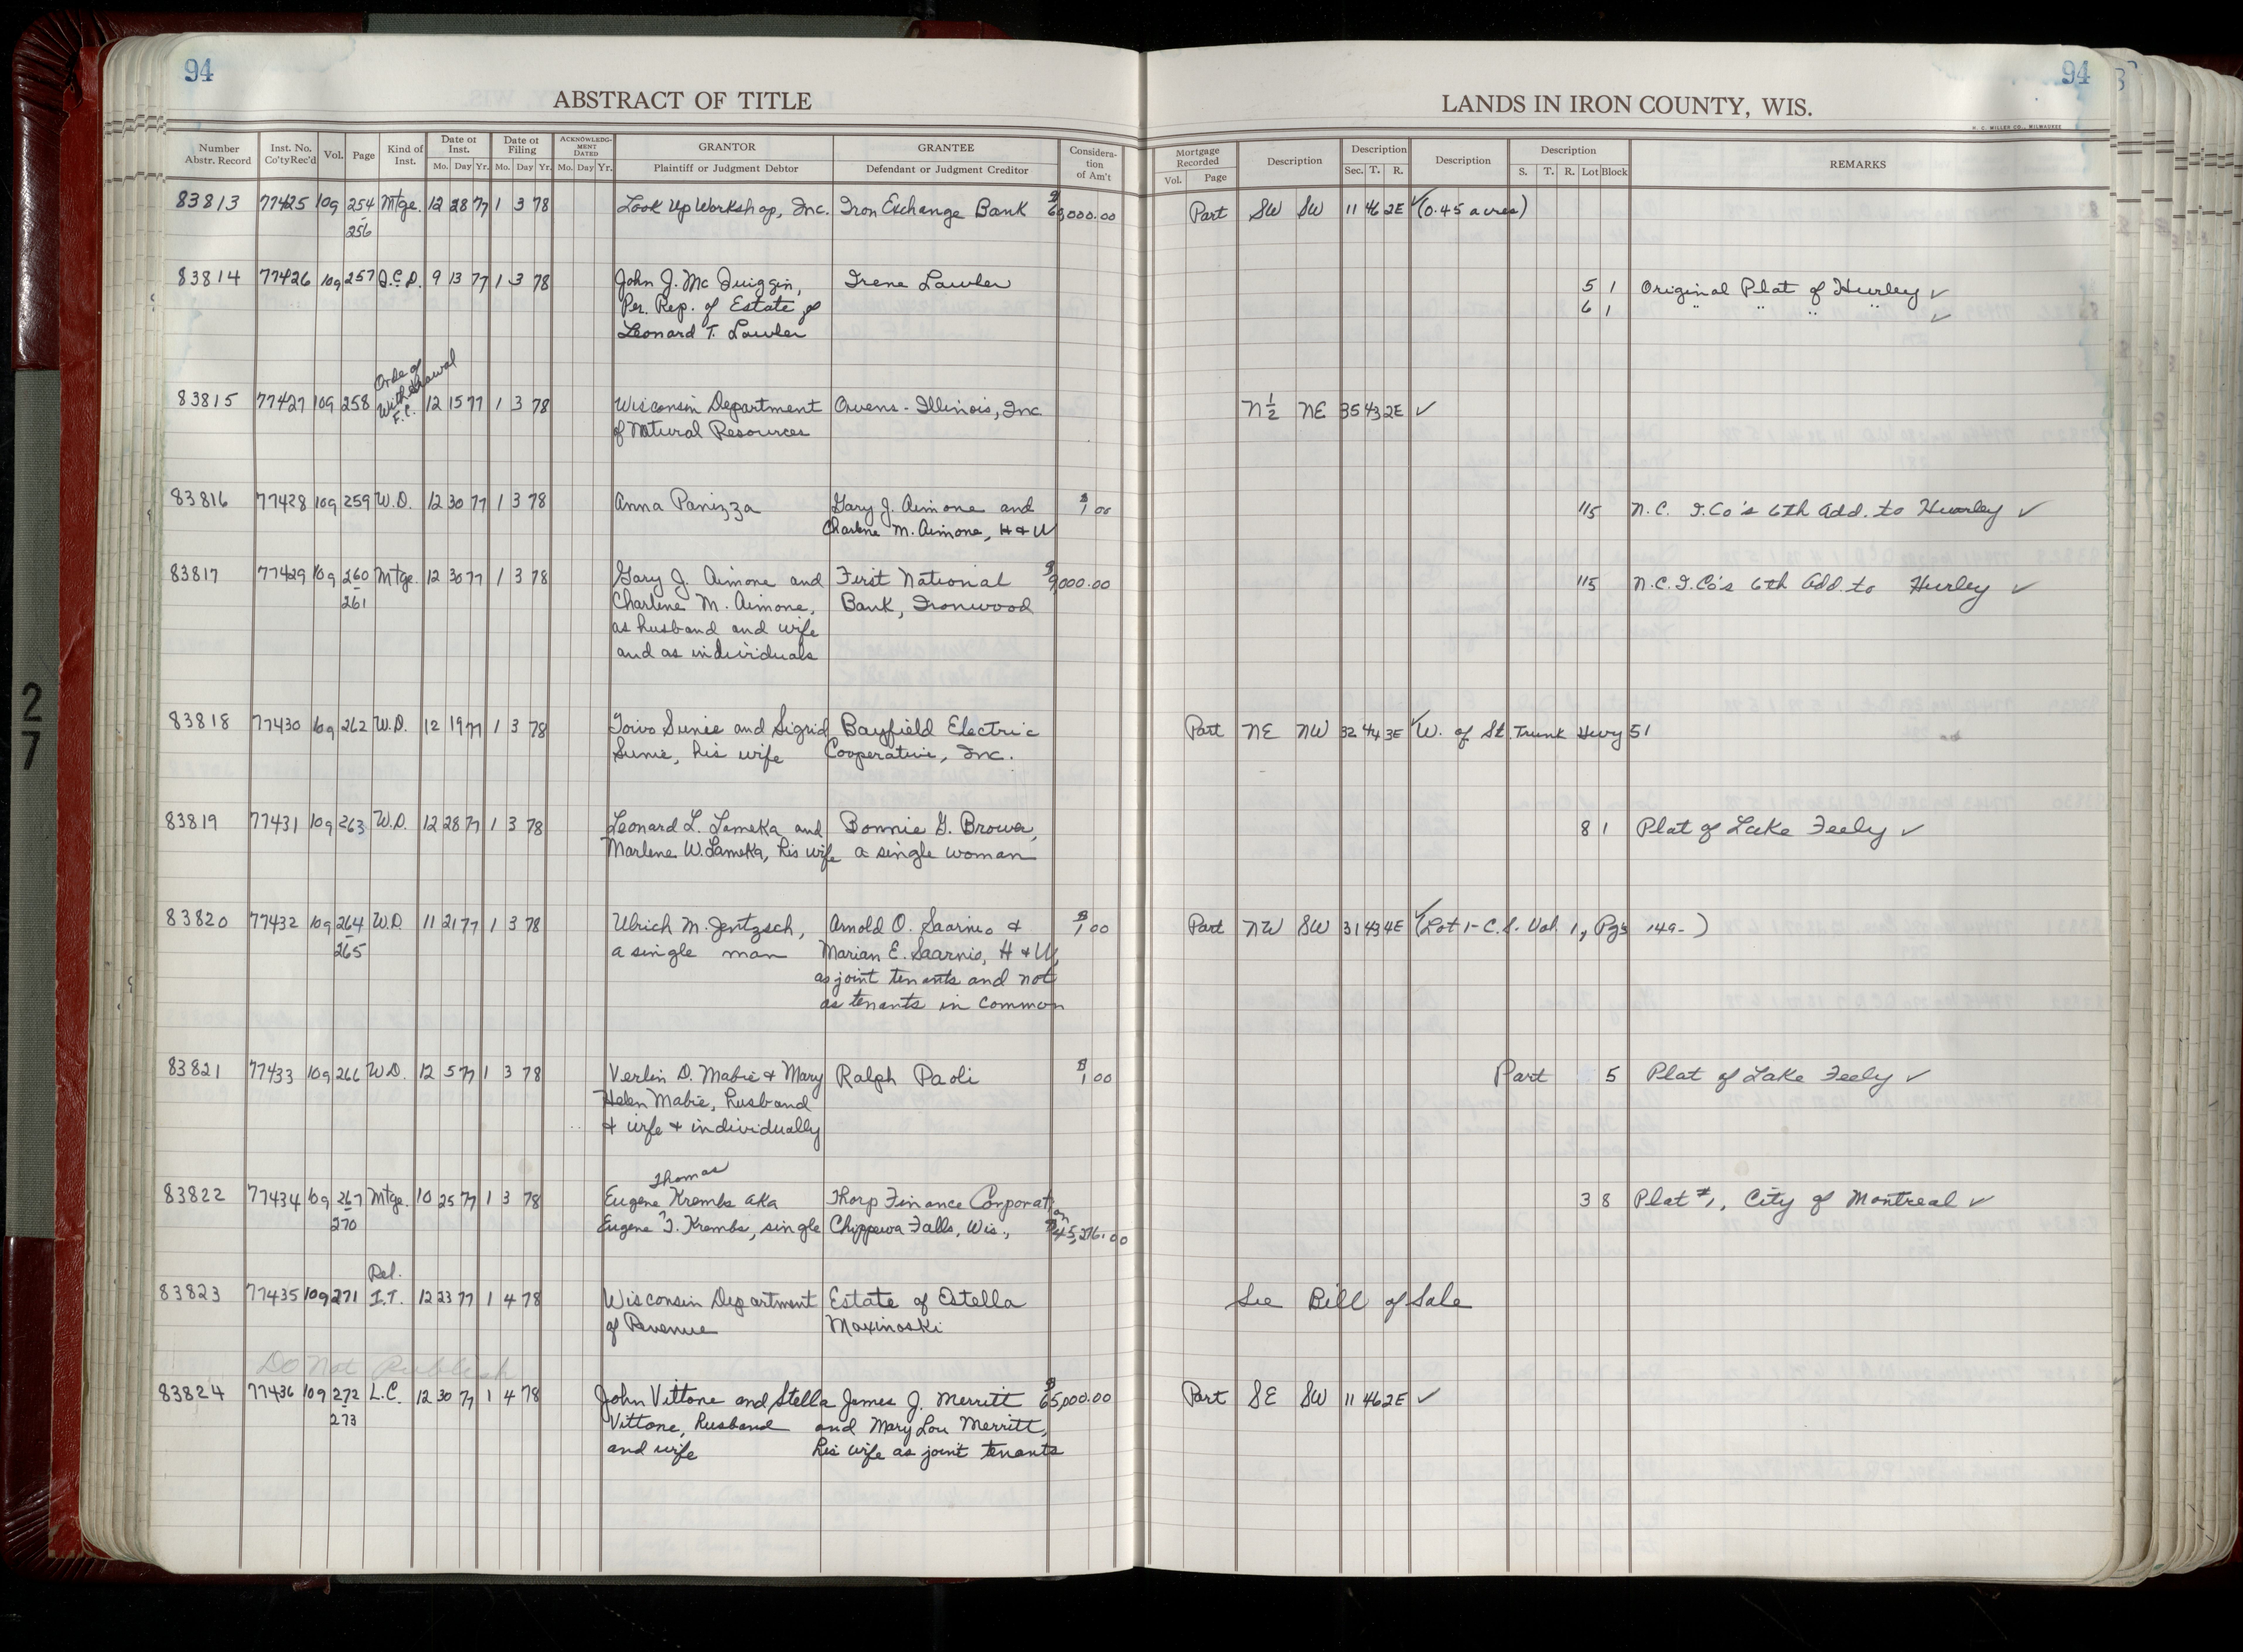 94
ABSTRACT OF TITLE
Number Abstr. Record | Inst. No. Co'ty Rec'd | Vol. | Page | Kind of Inst. | Date of Inst. Mo. Day Yr. | Date of Filing Mo. Day Yr. | ACKNOWLEDGMENT DATED Mo. Day Yr. | GRANTOR Plaintiff or Judgment Debtor | GRANTEE Defendant or Judgment Creditor | Consideration of Am't
94
LANDS IN IRON COUNTY, WIS.
H. C. MILLER CO., MILWAUKEE
Mortgage Recorded Vol. Page | Description | Description Sec. T. R. | Description | Description S. T. R. Lot Block | REMARKS
83813 77425 109 254 Mtge. 12 28 77 1 3 78 Look Up Workshop, Inc. Iron Exchange Bank $60,000.00 Part SW SW 11 46 2E ✓ (0.45 acres)
-
256
83814 77426 109 257 Q.C.D. 9 13 77 1 3 78 John J. Mc Quiggin, Irene Lawler 5 1 Original Plat of Hurley ✓
Per. Rep. of Estate of 6 1 " " " " ✓
Leonard T. Lawler
Orde of
Withdrawal
83815 77427 109 258 F.C. 12 15 77 1 3 78 Wisconsin Department Owens-Illinois, Inc N½ NE 35 43 2E ✓
of Natural Resources
83816 77428 109 259 W.D. 12 30 77 1 3 78 Anna Panizza Gary J. Aimone and $1.00 115 N.C. I. Co's 6th Add. to Hurley ✓
Charlene M. Aimone, H & W
83817 77429 109 260 Mtge. 12 30 77 1 3 78 Gary J. Aimone and First National $9,000.00 115 N.C.I.Co's 6th Add. to Hurley ✓
-
261 Charlene M. Aimone, Bank, Ironwood
as husband and wife
and as individuals
83818 77430 109 262 W.D. 12 19 77 1 3 78 Toivo Sunie and Sigrid Bayfield Electric Part NE NW 32 44 3E ✓ W. of St. Trunk Hwy 51
Sunie, his wife Cooperative, Inc.
83819 77431 109 263 W.D. 12 28 77 1 3 78 Leonard L. Lameka and Bonnie G. Brower, 8 1 Plat of Lake Feely ✓
Marlene W. Lameka, his wife a single woman
83820 77432 109 264 W.D. 11 21 77 1 3 78 Ulrich M. Jentzsch, Arnold O. Saarnio & $1.00 Part NW SW 31 43 4E ✓ (Lot 1-C.S. Vol. 1, Pgs 149-)
-
265 a single man Marian E. Saarnio, H & W,
as joint tenants and not
as tenants in common
83821 77433 109 266 W.D. 12 5 77 1 3 78 Verlin D. Mabie & Mary Ralph Paoli $1.00 Part 5 Plat of Lake Feely ✓
Helen Mabie, husband
& wife & individually
Thomas
83822 77434 109 267 Mtge. 10 25 77 1 3 78 Eugene ^ Krembs aka Thorp Finance Corporation 3 8 Plat #1, City of Montreal ✓
-
270 Eugene T. Krembs, single Chippewa Falls, Wis., $45,276.00
Rel.
83823 77435 109 271 I.T. 12 23 77 1 4 78 Wisconsin Department Estate of Estella See Bill of Sale
of Revenue Maxinoski
Do Not Publish
83824 77436 109 272 L.C. 12 30 77 1 4 78 John Vittone and Stella James J. Merritt $65,000.00 Part SE SW 11 46 2E ✓
-
273 Vittone, husband and Mary Lou Merritt,
and wife his wife as joint tenants
27